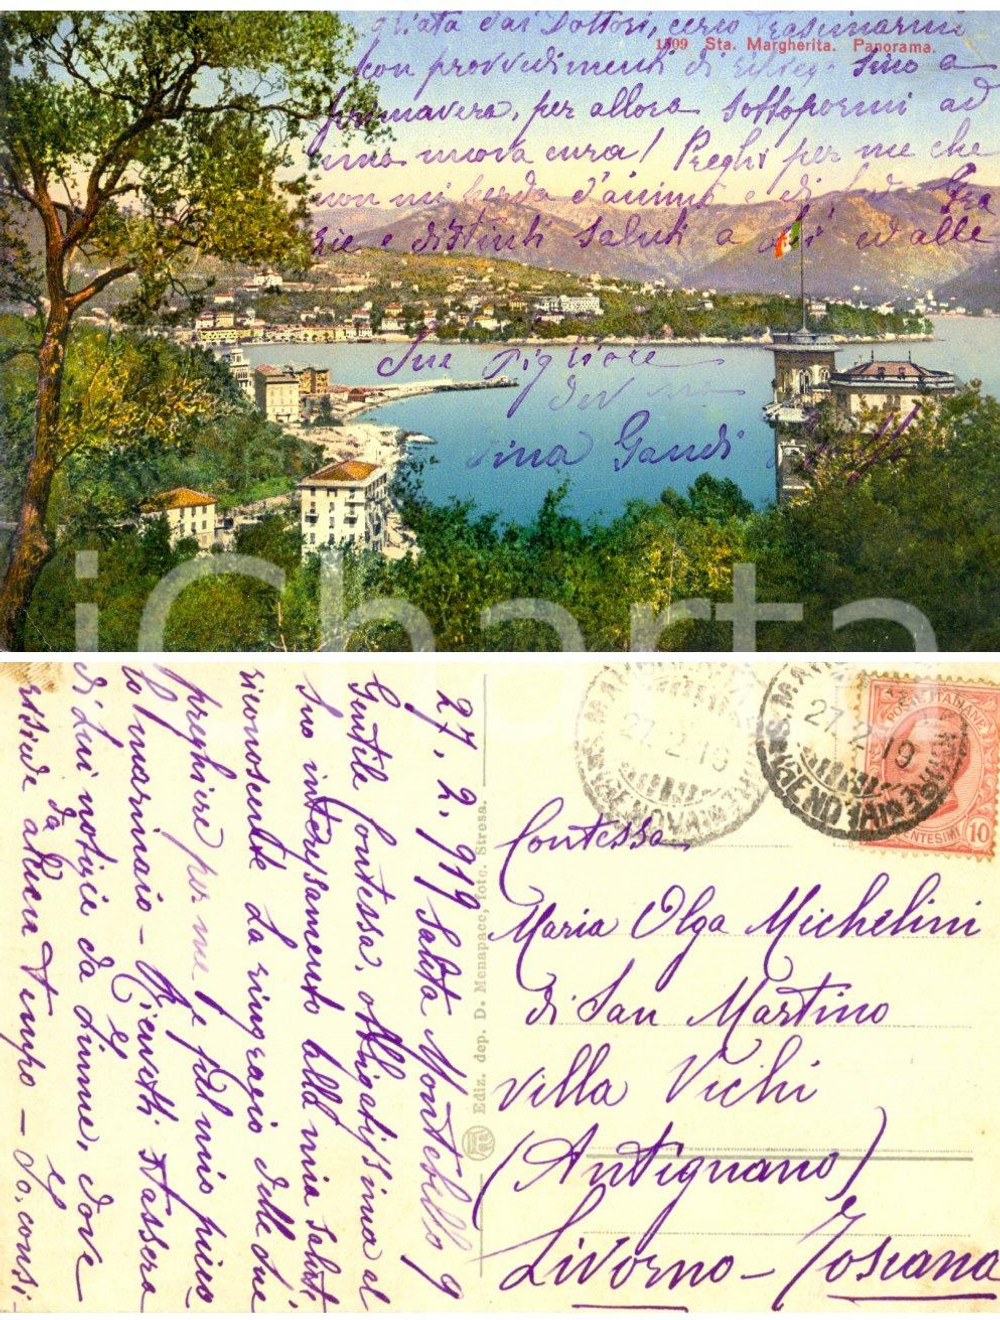 gliata dai Dottori, cerco trascinarmi
1509 Sta. Margherita. Panorama.
con provvedimenti di ripiego sino a
primavera, per allora sottopormi ad
una nuova cura! Preghi per me che
non mi perda d'animo e di
Gra
zie e distinti saluti a Lei ed alle
Sue figliore
dev
ina Gandi
iCharta
27, 2, 919 Salita Montebello 9
Gentile Contessa, obbligatissima al
Suo interessamento alla mia salute
riconoscente La ringrazio delle Sue
preghiere per me e pel mio piccolo
marinaio -
di Lui notizie da Fiume, dove
risiede da alcun Tempo - Io, consi-
Ediz. dep. D. Menapace, fotc. Stresa.
27.2.19
27.2.19
POSTE ITALIANE
CENTESIMI
10
Contessa
Maria Olga Michelini
di San Martino
Villa Vichi
(Antignano)
Livorno - Toscana